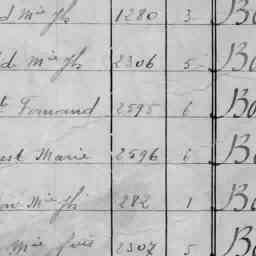 d Mie Jh 1280 3 Bo
d Mie Jh 2306 5 Bo
t Fernand 2595 6 Bo
est Marie 2596 6 Bo
on Mie Jh 282 1 Bo
Mie 2307 5 Bo